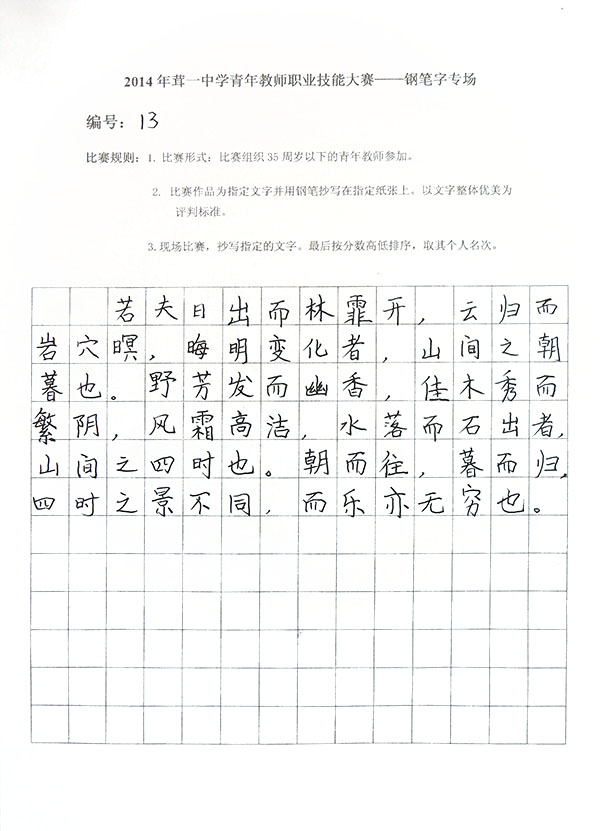 2014 年茸一中学青年教师职业技能大赛——钢笔字专场
编号：13
比赛规则：1. 比赛形式：比赛组织 35 周岁以下的青年教师参加。
2. 比赛作品为指定文字并用钢笔抄写在指定纸张上。以文字整体优美为
评判标准。
3.现场比赛，抄写指定的文字。最后按分数高低排序，取其个人名次。
若夫日出而林霏开，云归而
岩穴暝，晦明变化者，山间之朝
暮也。野芳发而幽香，佳木秀而
繁阴，风霜高洁，水落而石出者，
山间之四时也。朝而往，暮而归，
四时之景不同，而乐亦无穷也。